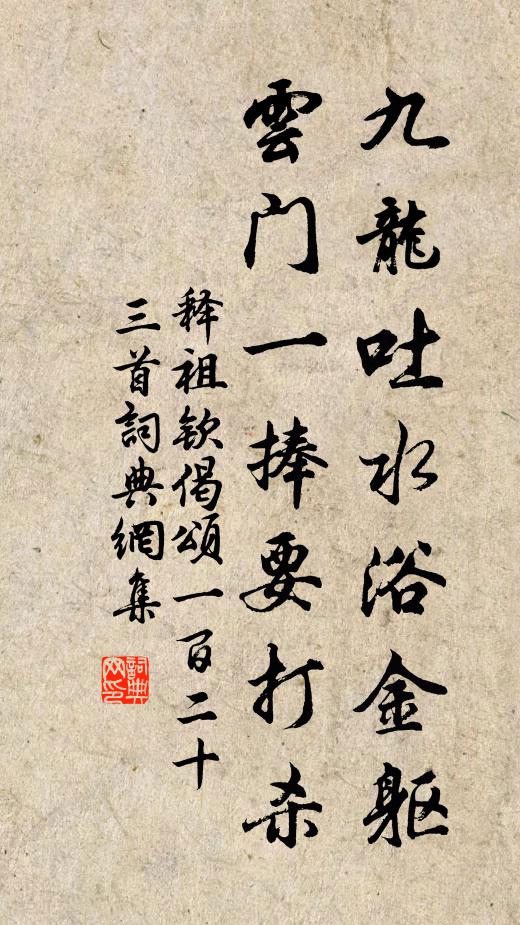 九龍吐水浴金躯
雲门一捧要打杀
释祖钦偈頌一百二十
三首詞典網集
詞典网印